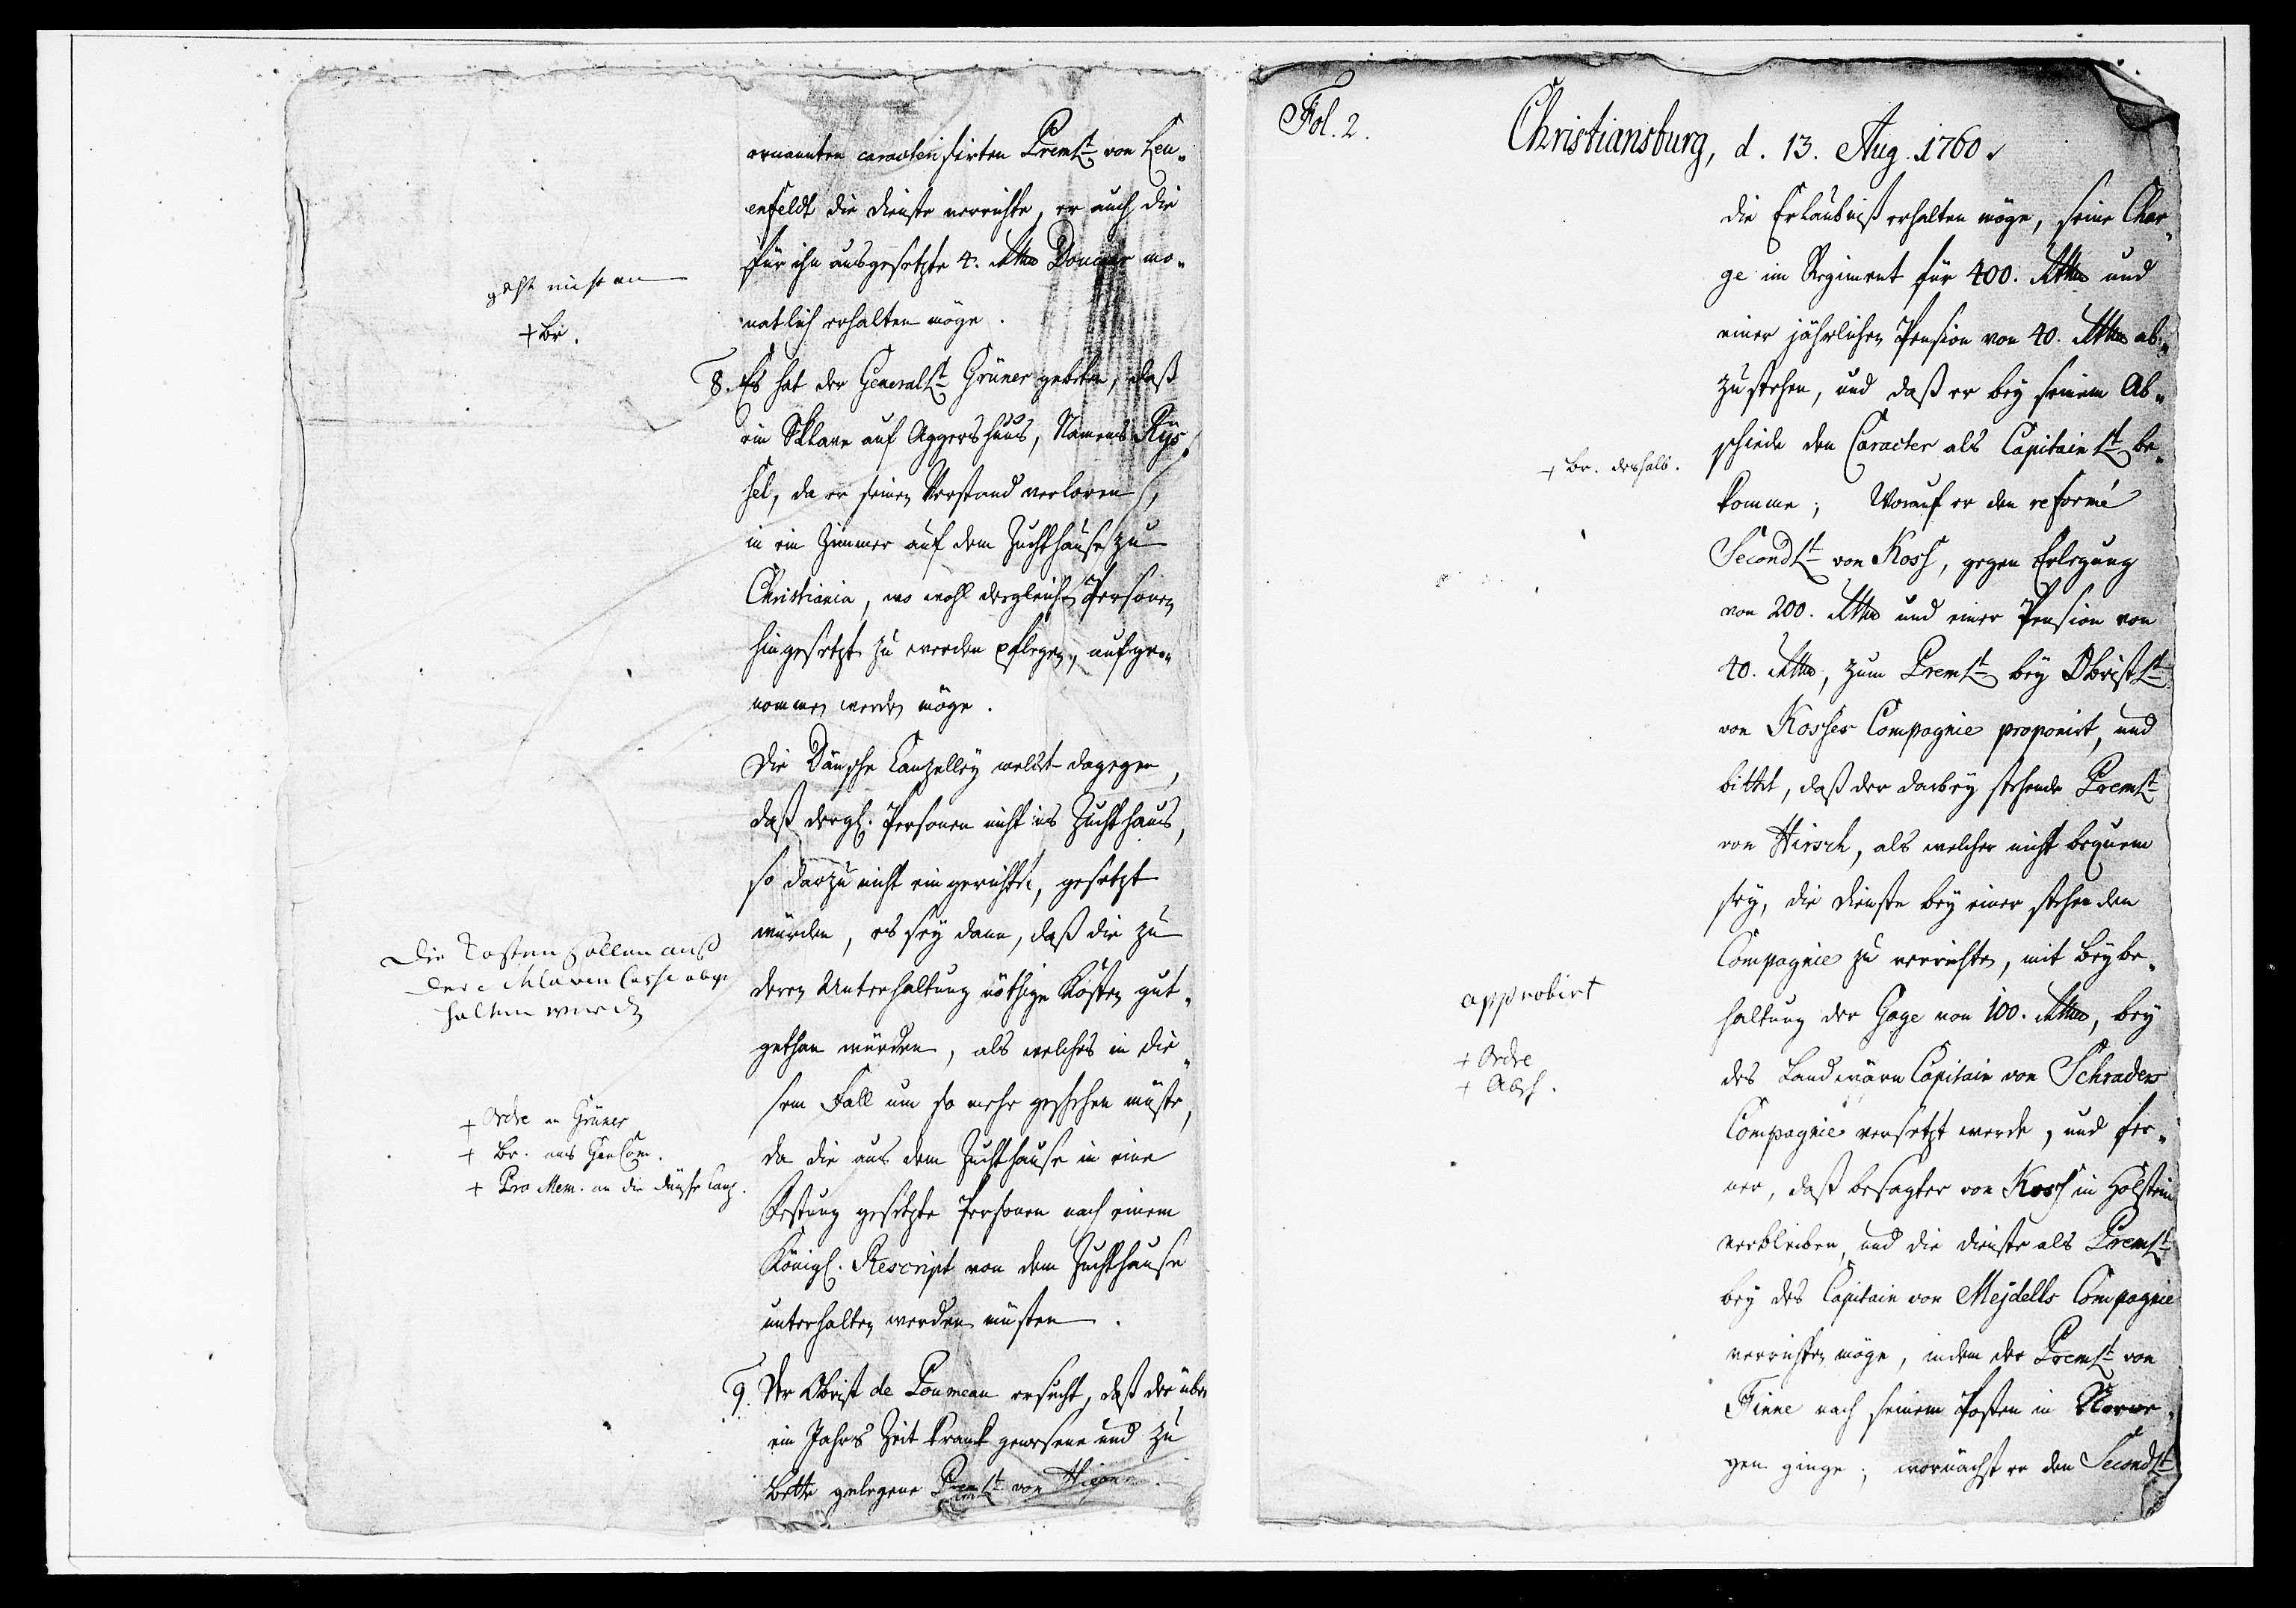 ernannten caracterisirten PremLt von Leu-
enfeldt die Dienste verrichte, er auch die
für ihn ausgesetzte 4. Rthlr Douceur mo-
natlich erhalten möge.
geht nicht an
+ Br.
8. Es hat der GeneralLt Grüner gebeten, daß
ein Sklave auf Aggershuus, Namens Rys-
sel, da er seinen Verstand verloren,
in ein Zimmer auf dem Zuchthause zu
Christiania, wo wohl dergleichen Personen
hingesetzt zu werden pflegen, aufge-
nommen werden möge.
Die Dänsche Canzelley meldet dagegen,
daß dergl. Personen nicht ins Zuchthaus,
so darzu nicht eingerichtet, gesetzt
würden, es sey dann, daß die zu
deren Unterhaltung nöthige Kosten gut-
gethan würden, als welches in die-
sem Fall um so mehr geschehen müste,
da die aus dem Zuchthause in eine
Festung gesetzte Personen nach einem
Königl. Rescript von dem Zuchthause
unterhalten werden müsten.
Die Kosten sollen auß
der Sclaven Casse abge
halten werden
+ Ordre an Grüner
+ Br. ans GenCom.
+ Pro Mem. an die Dänsche Canz.
9. Der Obrist de Poumeau ersucht, daß der über
ein Jahrs Zeit krank gewesene und zu
Bette gelegene PremLt von
Fol. 2.
Christiansburg, d. 13. Aug. 1760.
die Erlaubniß erhalten möge, seine Char-
ge im Regiment für 400. Rthlr und
einer jährlichen Pension von 40. Rthlr ab-
zustehen, und daß er bey seinem Ab-
schiede den Caracter als CapitainLt be-
komme; Worauf er den reformé
SecondLt von Koss, gegen Erlegung
von 200. Rthlr und einer Pension von
40. Rthlr, zum PremLt bey ObristLt
von Kosses Compagnie proponirt, und
bittet, daß der dabey stehende PremLt
von Hirsch, als welcher nicht bequem
sey, die Dienste bey einer stehenden
Compagnie zu verrichten, mit Beybe-
haltung der Gage von 100. Rthlr, bey
des Landwärn Capitain von Schraders
Compagnie versetzt werde, und fer-
ner, daß besagter von Koss in Holstein
verbleiben, und die Dienste als PremLt
bey des Capitain von Mejdells Compagnie
verrichten möge, indem der PremLt von
Finne nach seinem Posten in Norwe-
gen ginge; wornächst er den SecondLt
+ Br. deshalb.
approbirt
+ Ordre
+ Absch.